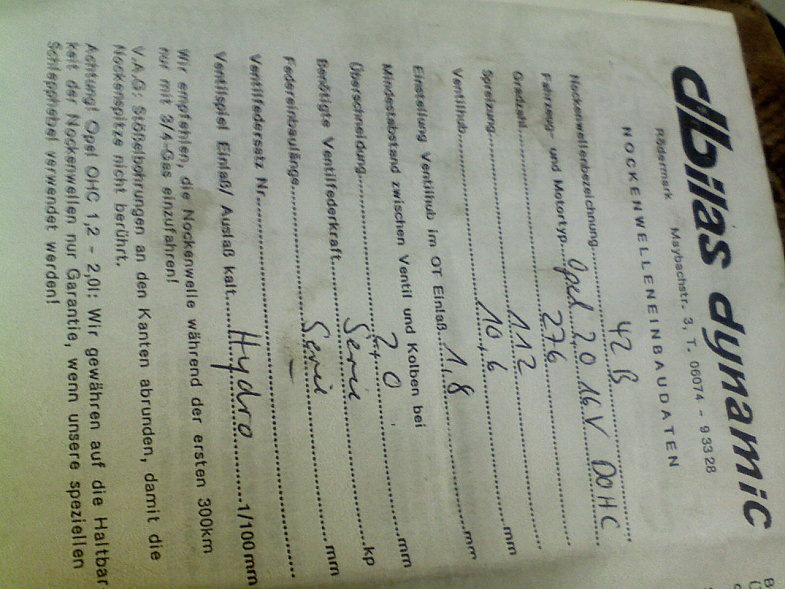 dbilas dynamic
Rödermark Maybachstr. 3, T. 06074 - 93328
NOCKENWELLENEINBAUDATEN
Nockenwellenbezeichnung 42 B
Fahrzeug- und Motortyp Opel 2,0 16V DOHC
Gradzahl 276
Spreizung 112 mm
Ventilhub 10,6 mm
Einstellung Ventilhub im OT Einlaß 1,8 mm
Mindestabstand zwischen Ventil und Kolben bei
Überschneidung 2,0 mm
Benötigte Ventilfederkraft Serie kp
Federeinbaulänge Serie mm
Ventilfedersatz Nr. –
Ventilspiel Einlaß/Auslaß kalt Hydro 1/100 mm
Wir empfehlen, die Nockenwelle während der ersten 300km
nur mit 3/4-Gas einzufahren!
V.A.G. Stößelbohrungen an den Kanten abrunden, damit die
Nockenspitze nicht berührt.
Achtung! Opel OHC 1,2 - 2,0l: Wir gewähren auf die Haltbar
keit der Nockenwellen nur Garantie, wenn unsere speziellen
Schlepphebel verwendet werden!